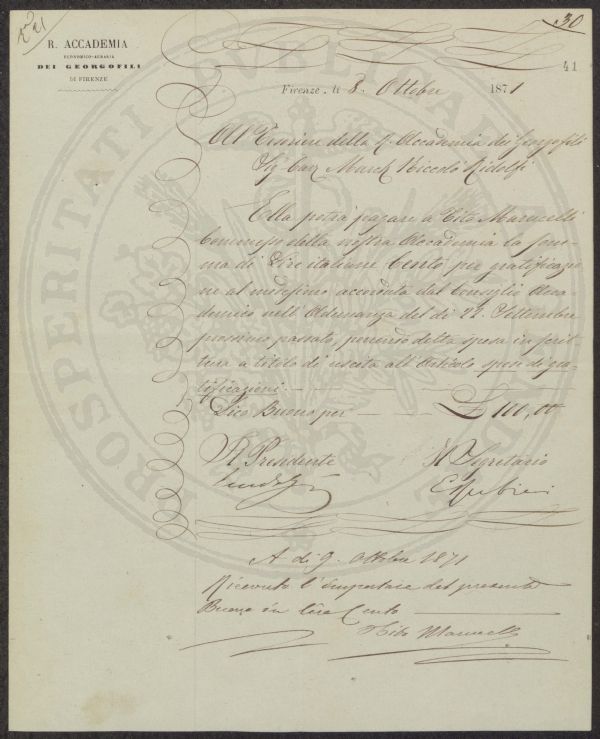 30
R. ACCADEMIA
ECONOMICO-AGRARIA
DEI GEORGOFILI
DI FIRENZE
41
Firenze. li 8. Ottobre 1871
Al Tesoriere della R. Accademia dei Georgofili
Sig Cav March Niccolò Ridolfi
Ella potrà pagare a Tito Marucelli
Commesso della nostra Accademia la som-
ma di Lire italiane Cento per gratificazio
ne al medesimo accordata dal Consiglio Acca
demico nell'Adunanza del di 22. Settembre
prossimo passato, ponendo detta spesa in scrit
tura a titolo di uscita all'Articolo spese di gra-
tificazioni
Dico Buono per £ 100,00
Il Presidente Il Segretario
A di 9. Ottobre 1871
Ricevuto l'importare del presente
Buono in Lire Cento
Tito Marucelli
PROSPERITATI PUBLICAE